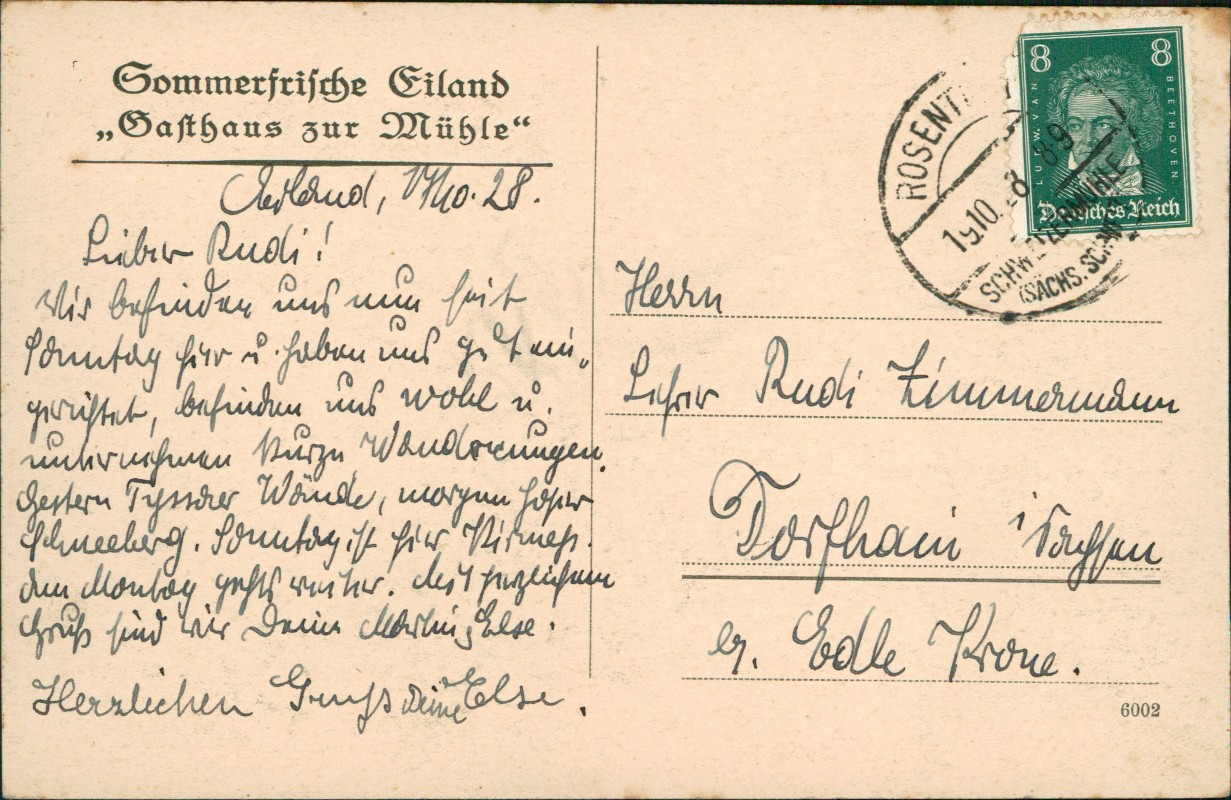 Sommerfrische Eiland
„Gasthaus zur Mühle“
Eiland, 17/10.28.
Lieber Rudi!
Wir befinden uns nun seit
Sonntag hier u. haben uns gut ein-
gerichtet, befinden uns wohl u.
unternehmen kurze Wanderungen.
Gestern Tyssaer Wände, morgen hoher
Schneeberg. Sonntag ist hier Kirmeß.
Am Montag gehts weiter. Mit herzlichem
Gruß sind wir Deine Martin, Else.
Herzlichen Gruß Deine Else.
8 8
LUDW. VAN
BEETHOVEN
Deutsches Reich
ROSENT
19.10.28 8-9
SCHWEIZERMÜHLE
(SÄCHS. SCHWEIZ
Herrn
Lehrer Rudi Zimmermann
Dorfhain i Sachsen
b. Edle Krone.
6002